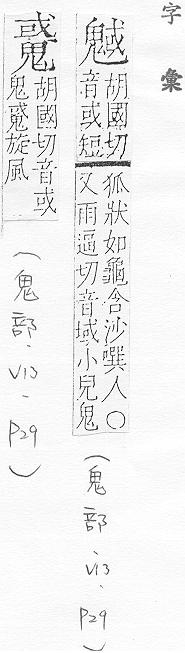 字彙
魊
胡國切
音或短
狐狀如龜含沙噀人○
又雨逼切音域小兒鬼
(鬼部、V13、P29)
胡國切音或
鬼旋風
(鬼部、V13、P29)